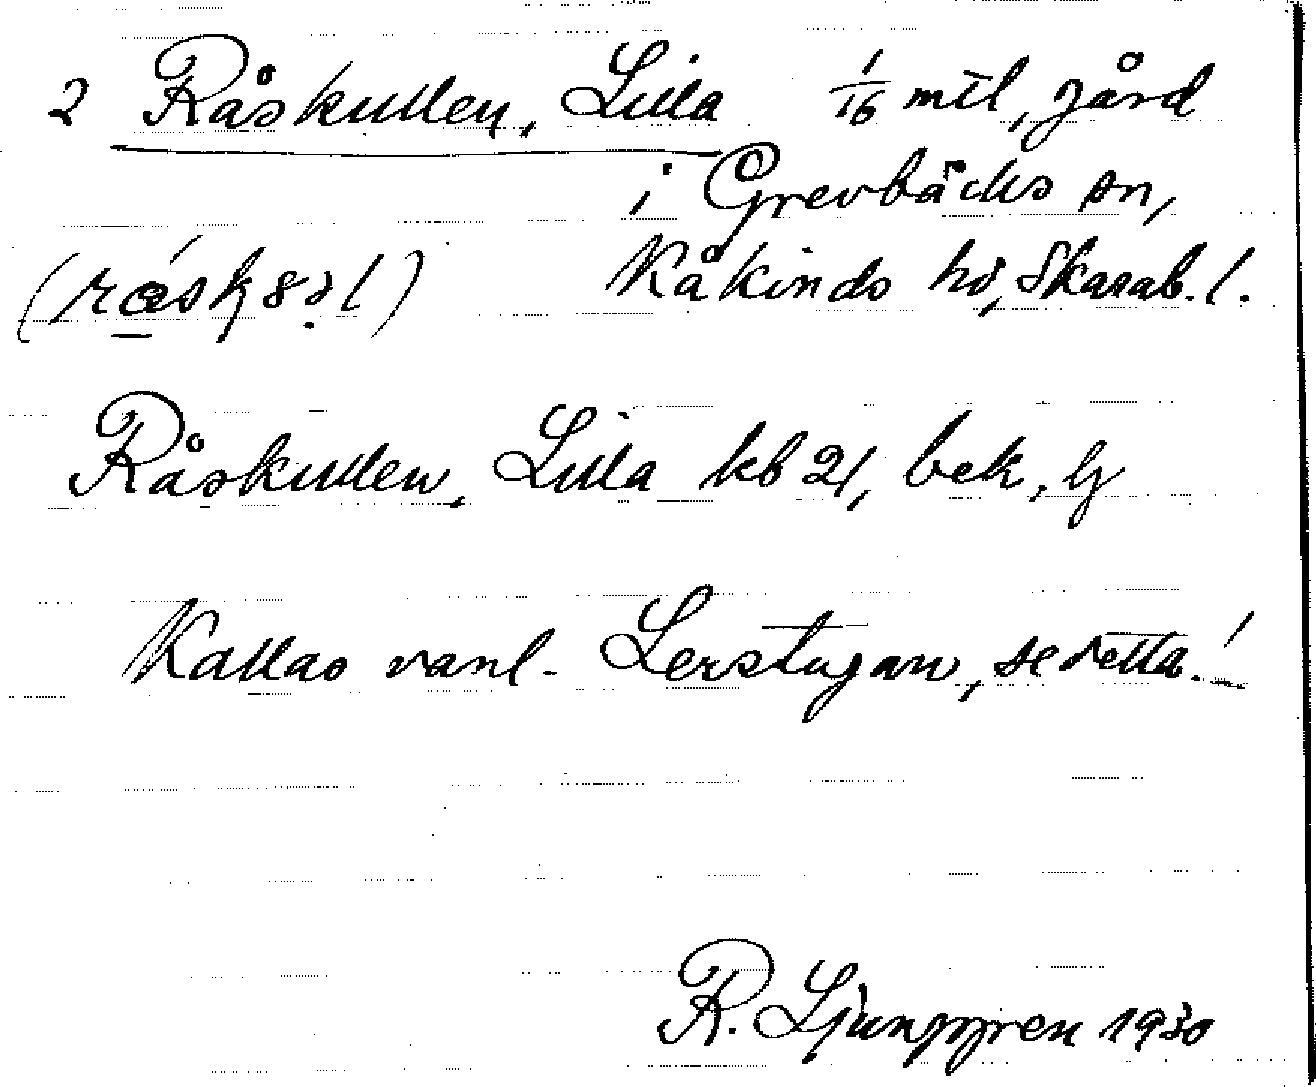 2 Råskullen, Lilla 1/16 mtl, gård
i Grevbäcks sn,
Kåkinds hd, Skarab. l.
Råskullen, Lilla kb 21, bek, lj
Kallas vanl. Lerstugan, se detta!
R. Ljunggren 1930